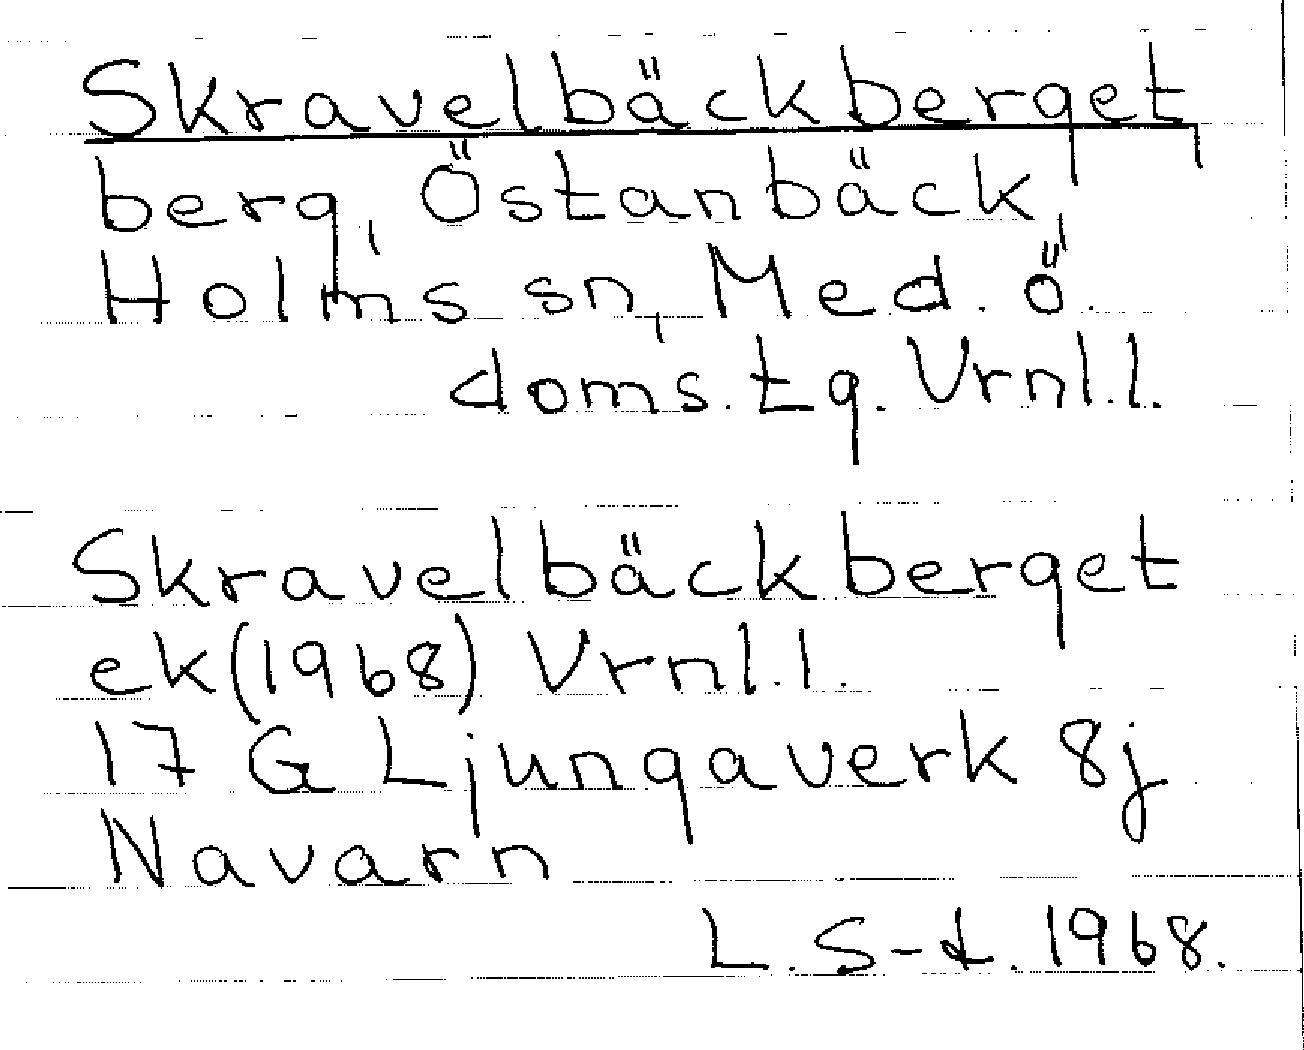 Skravelbäckberget,
berg, Östanbäck,
Holms sn, Med. ö.
doms. tg. Vrnl.l.
Skravelbäckberget
ek (1968) Vrnl.l.
17 G Ljungaverk 8j
Navarn
L. S-d. 1968.